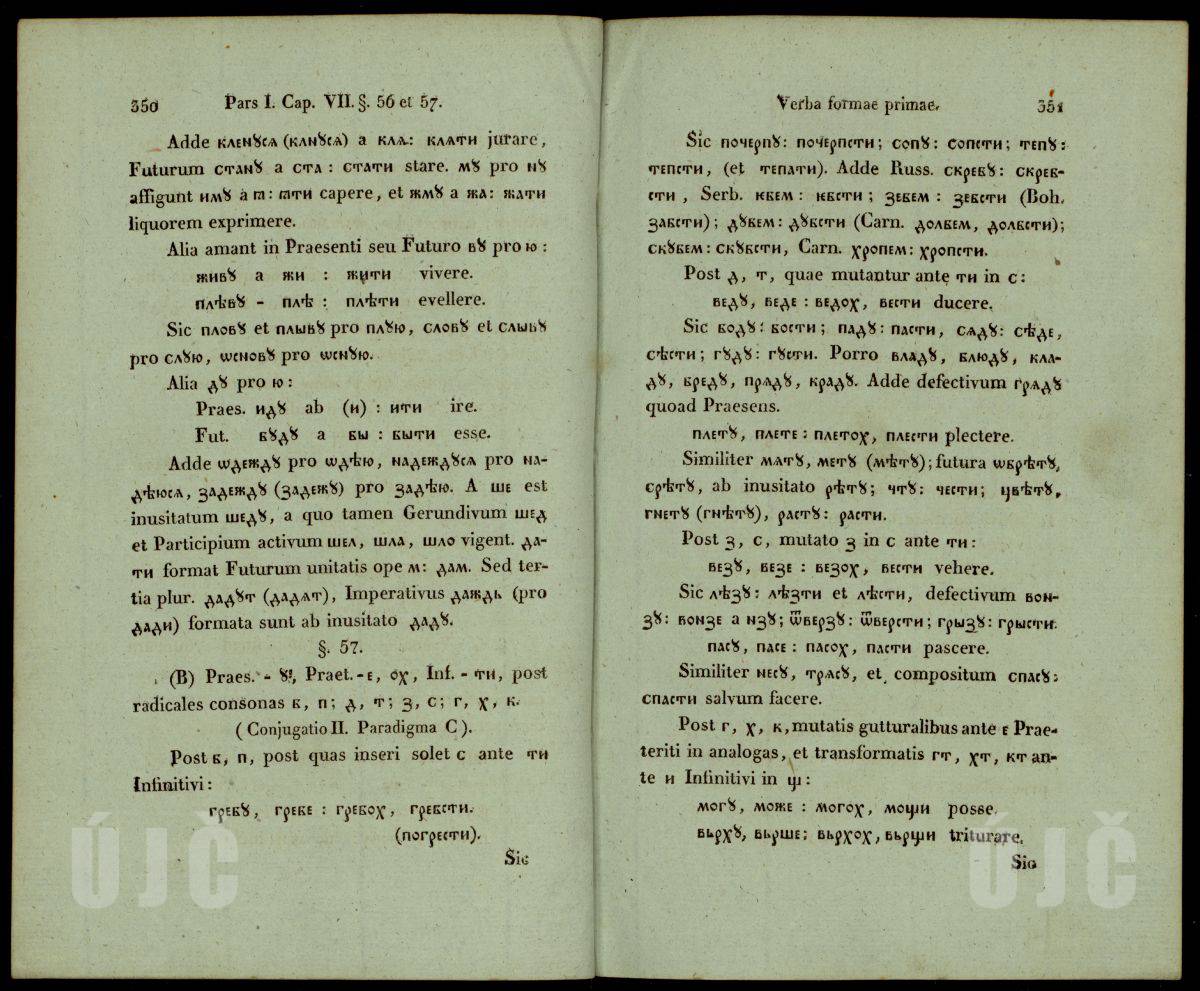 350 Pars I. Cap. VII. §. 56 et 57.
Adde кленꙋсѧ (клнꙋсѧ) a клѧ: клѧти jurare,
Futurum станꙋ a ста : стати stare. мꙋ pro нꙋ
affigunt имꙋ a ꙗ: ꙗти capere, et жмꙋ a жа: жати
liquorem exprimere.
Alia amant in Praesenti seu Futuro вꙋ pro ю :
живꙋ a жи : жити vivere.
плѣвꙋ - плѣ : плѣти evellere.
Sic пловꙋ et плывꙋ pro плꙋю, словꙋ et слывꙋ
pro слꙋю, ѡсновꙋ pro ѡснꙋю.
Alia дꙋ pro ю :
Praes. идꙋ ab (и) : ити ire.
Fut. бꙋдꙋ a бы : быти esse.
Adde ѡдеждꙋ pro ѡдѣю, надеждꙋсѧ pro на-
дѣюсѧ, задеждꙋ (задежꙋ) pro задѣю. A ше est
inusitatum шедꙋ, a quo tamen Gerundivum шед
et Participium activum шел, шла, шло vigent. да-
ти format Futurum unitatis ope м: дам. Sed ter-
tia plur. дадꙋт (дадѧт), Imperativus даждь (pro
дади) formata sunt ab inusitato дадꙋ.
§. 57.
(B) Praes. - ꙋ, Praet. - е, ох, Inf. - ти, post
radicales consonas б, п; д, т; з, с; г, х, к.
(Conjugatio II. Paradigma C).
Post б, п, post quas inseri solet с ante ти
Infinitivi :
гребꙋ, гребе : гребох, гребсти.
(погрести).
Sic
Verba formae primae. 351
Sic почерпꙋ: почерпсти; сопꙋ: сопсти; тепꙋ:
тепсти, (et тепати). Adde Russ. скребꙋ: скреб-
сти, Serb. ѥбем: ѥбсти; зебем : зебсти (Boh.
забсти); дꙋбем: дꙋбсти (Carn. долбем, долбсти);
скꙋбем: скꙋбсти, Carn. хропем: хропсти.
Post д, т, quae mutantur ante ти in с:
ведꙋ, веде : ведох, вести ducere.
Sic бодꙋ: бости; падꙋ: пасти, сѧдꙋ: сѣде,
сѣсти; гꙋдꙋ: гꙋсти. Porro владꙋ, блюдꙋ, кла-
дꙋ, бредꙋ, прѧдꙋ, крадꙋ. Adde defectivum грѧдꙋ
quoad Praesens.
плетꙋ, плете : плетох, плести plectere.
Similiter мѧтꙋ, метꙋ (мѣтꙋ); futura ѡбрѣтꙋ,
срѣтꙋ, ab inusitato рѣтꙋ; чтꙋ: чести; цвѣтꙋ,
гнетꙋ (гнѣтꙋ), растꙋ: расти.
Post з, с, mutato з in с ante ти:
везꙋ, везе : везох, вести vehere.
Sic лѣзꙋ: лѣзти et лѣсти, defectivum вон-
зꙋ: вонзе a нзꙋ; ѿверзꙋ: ѿверсти; грызꙋ: грысти.
пасꙋ, пасе : пасох, пасти pascere.
Similiter несꙋ, трѧсꙋ, et compositum спасꙋ:
спасти salvum facere.
Post г, х, к, mutatis gutturalibus ante е Prae-
teriti in analogas, et transformatis гт, хт, кт an-
te и Infinitivi in щ:
могꙋ, може : могох, мощи posse.
вьрхꙋ, вьрше; вьрхох, вьрщи triturare.
Sic
ÚJČ
ÚJČ